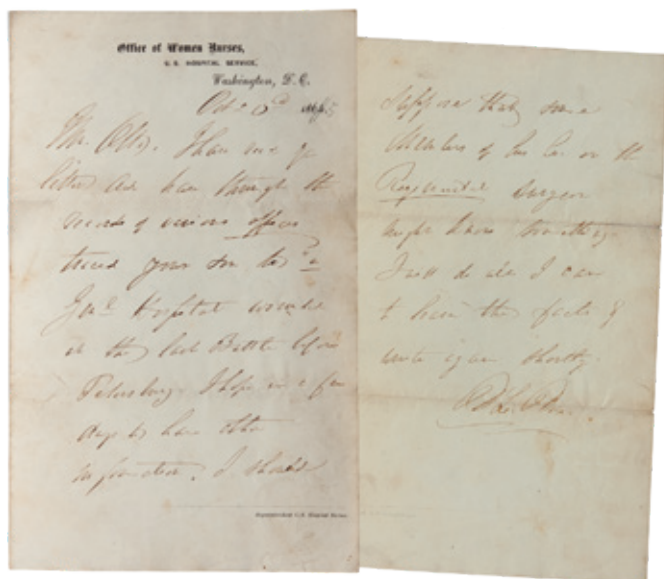 Office of Women Nurses,
U. S. HOSPITAL SERVICE,
Washington, D. C.
Oct 186
I have
letter and have through the
records of various offices
traced your son to
Hospital wounded
at the last Battle before
Petersburg. I hope in a few
days to have other
information. I should
Superintendent U.S. Hospital Nurses
suppose that some
Members of his Co. or the
Regimental Surgeon
might know something.
I will do all I can
to learn the facts &
write again shortly.